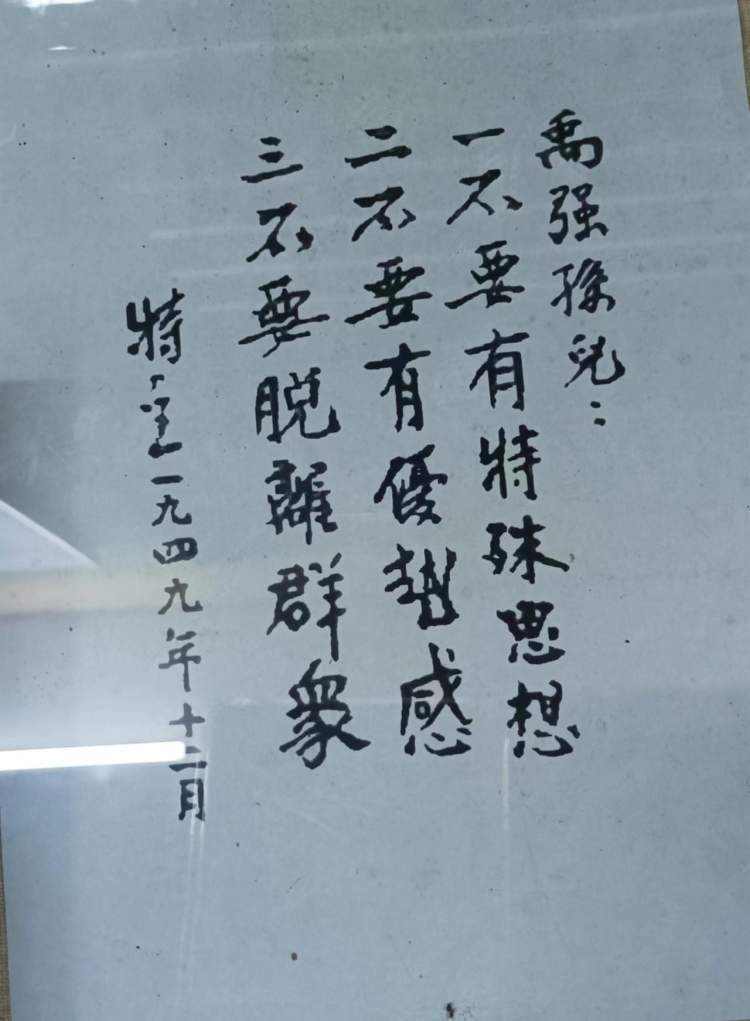 禹强孫兒：
一不要有特殊思想
二不要有優越感
三不要脱離群衆
特立一九四九年十二月